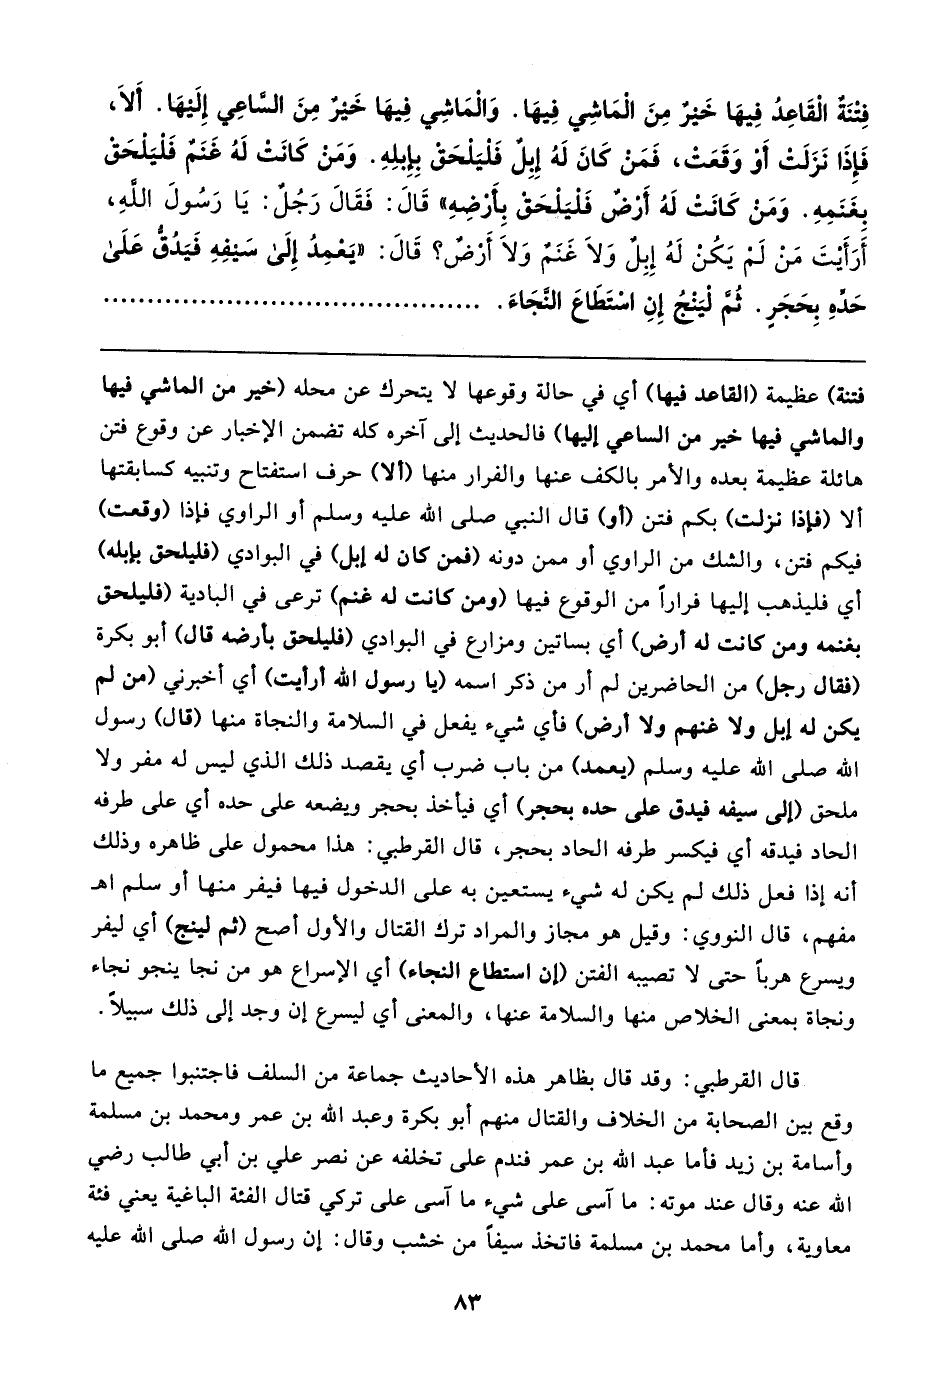 فِتْنَةٌ الْقَاعِدُ فِيهَا خَيْرٌ مِنَ الْمَاشِي فِيهَا. وَالْمَاشِي فِيهَا خَيْرٌ مِنَ السَّاعِي إِلَيْهَا. أَلَا،
فَإِذَا نَزَلَتْ أَوْ وَقَعَتْ، فَمَنْ كَانَ لَهُ إِبِلٌ فَلْيَلْحَقْ بِإِبِلِهِ. وَمَنْ كَانَتْ لَهُ غَنَمٌ فَلْيَلْحَقْ
بِغَنَمِهِ. وَمَنْ كَانَتْ لَهُ أَرْضٌ فَلْيَلْحَقْ بِأَرْضِهِ» قَالَ: فَقَالَ رَجُلٌ: يَا رَسُولَ اللَّهِ،
أَرَأَيْتَ مَنْ لَمْ يَكُنْ لَهُ إِبِلٌ وَلَا غَنَمٌ وَلَا أَرْضٌ؟ قَالَ: «يَعْمِدُ إِلَىٰ سَيْفِهِ فَيَدُقُّ عَلَىٰ
حَدِّهِ بِحَجَرٍ. ثُمَّ لْيَنْجُ إِنِ اسْتَطَاعَ النَّجَاءَ. ........................................
فتنة) عظيمة (القاعد فيها) أي في حالة وقوعها لا يتحرك عن محله (خير من الماشي فيها
والماشي فيها خير من الساعي إليها) فالحديث إلى آخره كله تضمن الإخبار عن وقوع فتن
هائلة عظيمة بعده والأمر بالكف عنها والفرار منها (ألا) حرف استفتاح وتنبيه كسابقتها
ألا (فإذا نزلت) بكم فتن (أو) قال النبي صلى الله عليه وسلم أو الراوي فإذا (وقعت)
فيكم فتن، والشك من الراوي أو ممن دونه (فمن كان له إبل) في البوادي (فليلحق بإبله)
أي فليذهب إليها فراراً من الوقوع فيها (ومن كانت له غنم) ترعى في البادية (فليلحق
بغنمه ومن كانت له أرض) أي بساتين ومزارع في البوادي (فليلحق بأرضه قال) أبو بكرة
(فقال رجل) من الحاضرين لم أر من ذكر اسمه (يا رسول الله أرأيت) أي أخبرني (من لم
يكن له إبل ولا غنهم ولا أرض) فأي شيء يفعل في السلامة والنجاة منها (قال) رسول
الله صلى الله عليه وسلم (يعمد) من باب ضرب أي يقصد ذلك الذي ليس له مفر ولا
ملحق (إلى سيفه فيدق على حده بحجر) أي فيأخذ بحجر ويضعه على حده أي على طرفه
الحاد فيدقه أي فيكسر طرفه الحاد بحجر، قال القرطبي: هذا محمول على ظاهره وذلك
أنه إذا فعل ذلك لم يكن له شيء يستعين به على الدخول فيها فيفر منها أو سلم اهـ
مفهم، قال النووي: وقيل هو مجاز والمراد ترك القتال والأول أصح (ثم لينج) أي ليفر
ويسرع هرباً حتى لا تصيبه الفتن (إن استطاع النجاء) أي الإسراع هو من نجا ينجو نجاء
ونجاة بمعنى الخلاص منها والسلامة عنها، والمعنى أي ليسرع إن وجد إلى ذلك سبيلاً.
قال القرطبي: وقد قال بظاهر هذه الأحاديث جماعة من السلف فاجتنبوا جميع ما
وقع بين الصحابة من الخلاف والقتال منهم أبو بكرة وعبد الله بن عمر ومحمد بن مسلمة
وأسامة بن زيد فأما عبد الله بن عمر فندم على تخلفه عن نصر علي بن أبي طالب رضي
الله عنه وقال عند موته: ما آسى على شيء ما آسى على تركي قتال الفئة الباغية يعني فئة
معاوية، وأما محمد بن مسلمة فاتخذ سيفاً من خشب وقال: إن رسول الله صلى الله عليه
٨٣